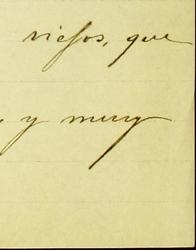 viejos, que
, y muy